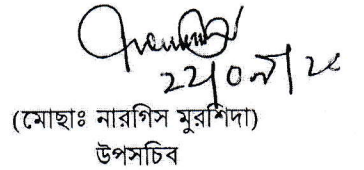 ২২/০৯/২৫
(মোছাঃ নারগিস মুরশিদা)
উপসচিব